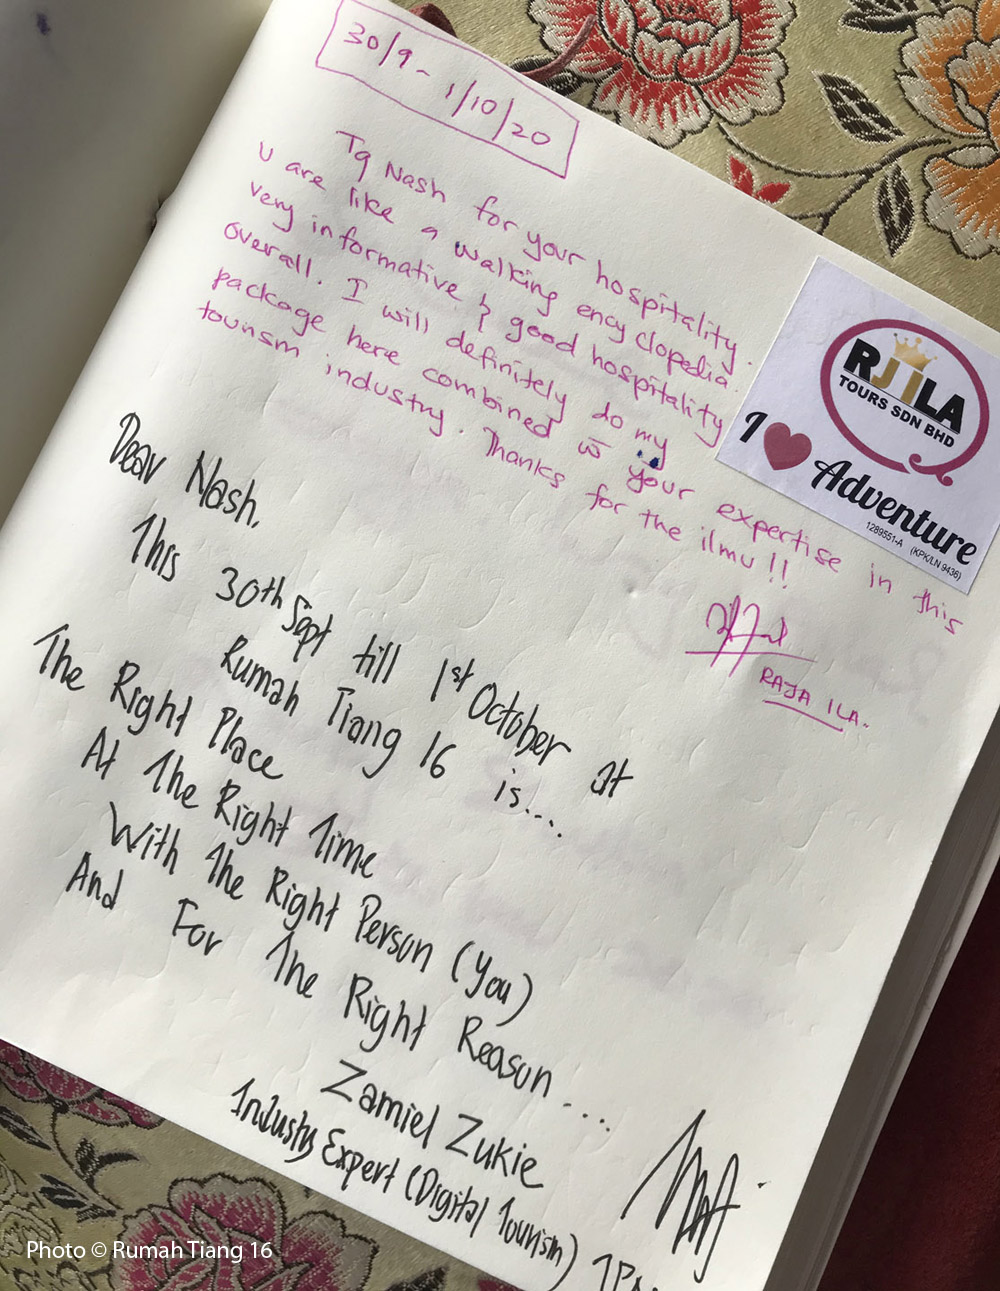 30/9 - 1/10/20
Tq Nash for your hospitality.
U are like a walking encyclopedia
very informative & good hospitality
overall. I will definitely do my
package here combined w̄ your expertise in this
tourism industry. Thanks for the ilmu!!
RAJA ILA.
RJ ILA
TOURS SDN BHD
I ❤ Adventure
1289551-A (KPK/LN 9436)
Dear Nash,
This 30th Sept till 1st October at
Rumah Tiang 16 is....
The Right Place
At The Right Time
With The Right Person (You)
And For The Right Reason....
Zamiel Zukie
Industry Expert (Digital Tourism)
Photo © Rumah Tiang 16